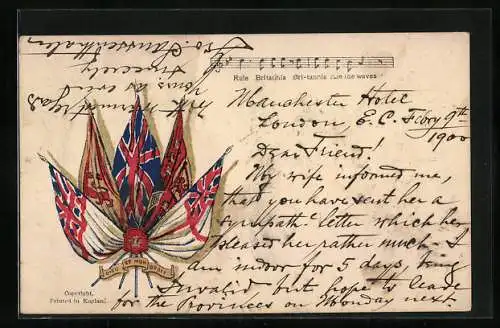 Rule Britannia Bri-tannia rule the waves
Manchester Hotel
London, E. C. Febry 9th
1900
Dear Friend!
My wife informed me,
that you have sent her a
sympath. letter which has
pleased her rather much. I
am indoor for 5 days, being
Invalid but hope to leave
for the Provinces on Monday next.
With
yours as ever
Sincerely
DIEU ET MON DROIT
Copyright.
Printed in England.